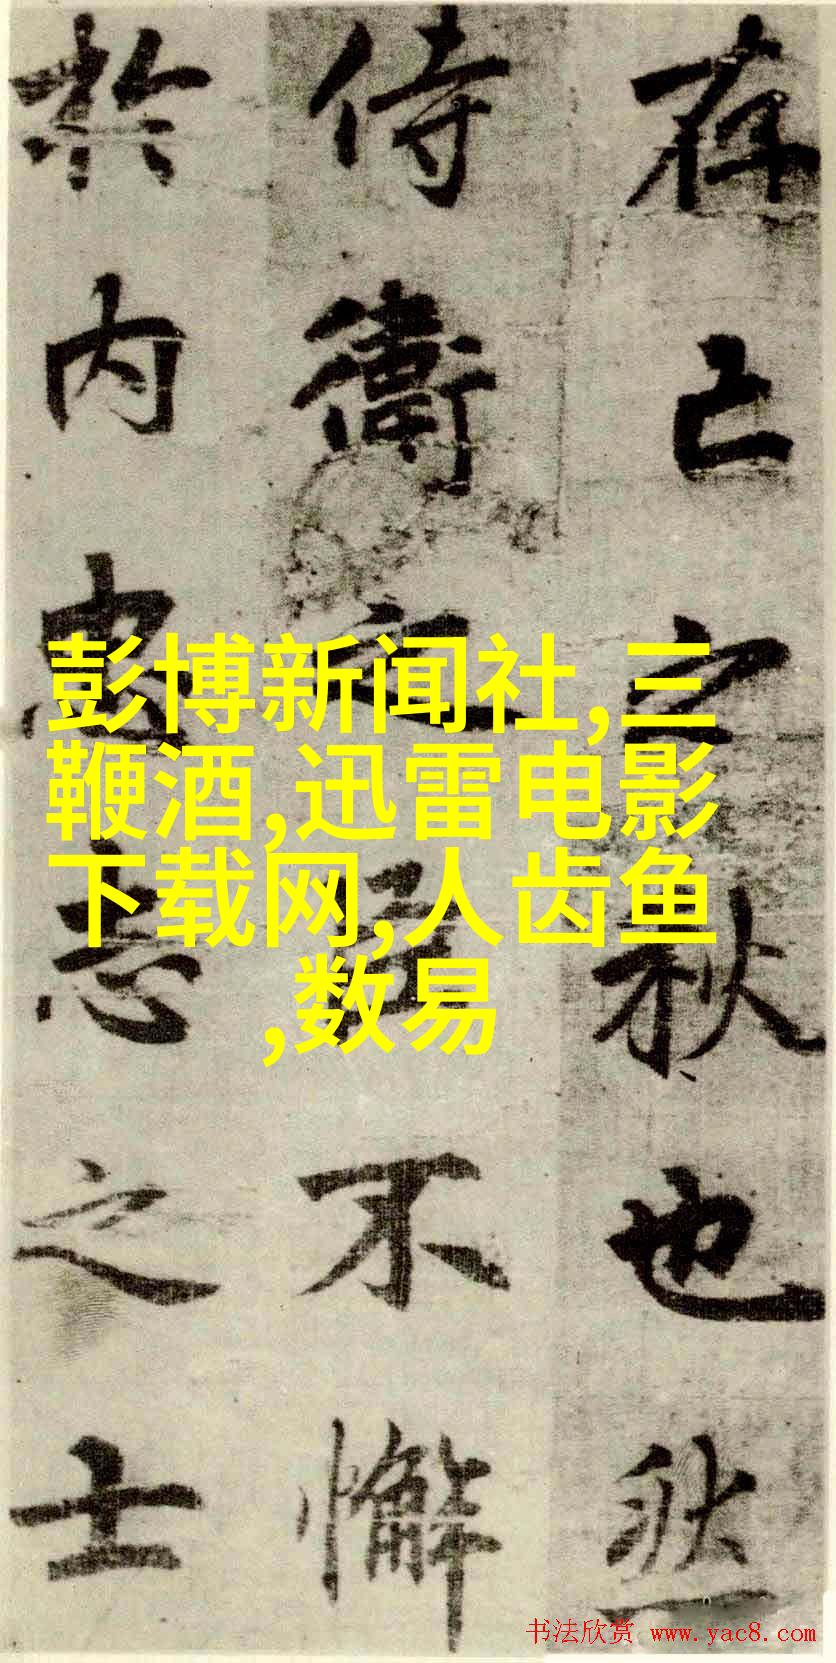 存亡之秋也然
侍衛之臣不懈
於内忠志之士
彭博新闻社,三
鞭酒,迅雷电影
下载网,人齿鱼
,数易
书法欣赏 www.yac8.com